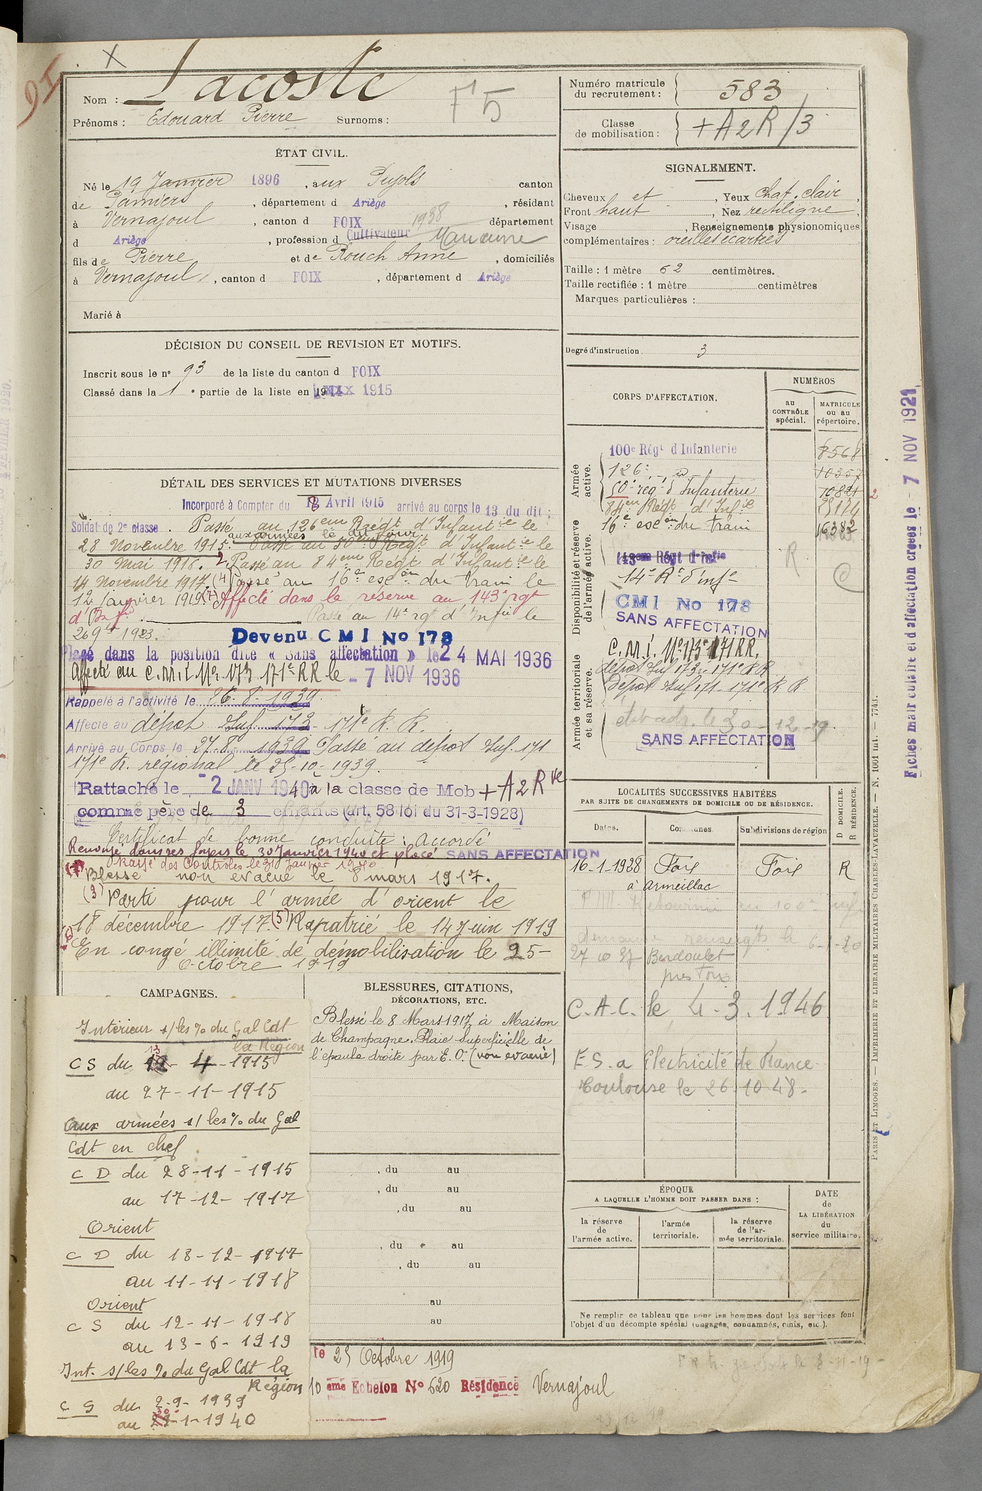 X
Nom : Lacoste
Prénoms : Edouard Pierre Surnoms :
F 5
Numéro matricule du recrutement : 583
Classe de mobilisation : + A2R/3
ÉTAT CIVIL.
Né le 19 Janvier 1896, aux Pujols canton
de Pamiers, département d Ariège, résidant
à Vernajoul, canton d FOIX 1938 département
d Ariège, profession d Cultivateur Manœuvre
fils de Pierre et de Rouch Anne, domiciliés
à Vernajoul, canton d FOIX, département d Ariège
Marié à
SIGNALEMENT.
Cheveux et , Yeux chat. clair
Front haut , Nez rectiligne
Visage , Renseignements physionomiques
complémentaires : oreilles écartées
Taille : 1 mètre 62 centimètres.
Taille rectifiée : 1 mètre centimètres
Marques particulières :
Degré d'instruction 3
DÉCISION DU CONSEIL DE REVISION ET MOTIFS.
Inscrit sous le n° 93 de la liste du canton d FOIX
Classé dans la 1e partie de la liste en 1915
DÉTAIL DES SERVICES ET MUTATIONS DIVERSES
Incorporé à Compter du 13 Avril 1915 arrivé au corps le 13 du dit :
Soldat de 2e classe. Passé au 126eme Regt d'Infantie le
28 Novembre 1915. aux armées le dit jour Passé au 50eme Regt d'Infantie le
30 Mai 1916. Passé au 84eme Regt d'Infantie le
14 Novembre 1917 (4) Passé au 16e escon du train le
12 Janvier 1919. Affecté dans la réserve au 143e rgt
d'Infie Passé au 14e rgt d'Infie le
1923. Devenu CMI No 178
Placé dans la position dite « Sans affectation » le 24 MAI 1936
Affecté au C.M.I. No 173 171e RR le - 7 NOV 1936
Rappelé à l'activité le 26.8.1939
Affecté au dépot Inf. 173 - 171e R.R.
Arrivé au Corps le 27.8.1939 Passé au dépot Inf. 171
171e R. régional le 25-10-1939.
Rattaché le 2 JANV 1940 à la classe de Mob + A2Rve
comme père de 3 enfants (art. 58 loi du 31-3-1928)
Certificat de bonne conduite : Accordé
Renvoyé dans ses foyers le 30 Janvier 1940 et placé SANS AFFECTATION
Rayé des Contrôles le 31 Janvier 1940
Blessé non évacué le 8 mars 1917.
(3) Parti pour l'armée d'orient le
18 décembre 1917. (5) Rapatrié le 14 juin 1919
En congé illimité de démobilisation le 25-
Octobre 1919
CORPS D'AFFECTATION.
NUMÉROS
au CONTRÔLE spécial.
MATRICULE ou au répertoire.
Armée active.
100e Régt d'Infanterie 8568
126e
50e rég. d'Infanterie
84em Regt d'Infie
16e escon du train
Disponibilité et réserve de l'armée active.
143eme Régt d'Infie
14e R. d'infie
CMI No 178
SANS AFFECTATION
R
C
Armée territoriale et sa réserve.
C.M.I. No 173e 171 RR.
dépot Inf 173. 171e RR
Dépot Inf 171 - 171e R R
SANS AFFECTATION
LOCALITÉS SUCCESSIVES HABITÉES
PAR SUITE DE CHANGEMENTS DE DOMICILE OU DE RÉSIDENCE.
Dates. Communes. Subdivisions de région D. DOMICILE. R. RÉSIDENCE.
16-1-1938 Foix Foix R
à Armeillac
27 10 37 Berdoulet
près Foix
C.A.C. le 4.3.1946
E.S. a Electricité de France
Toulouse le 26.10.48.
CAMPAGNES.
Intérieur s/ les % du Gal Cdt la Région
CS du 13-4-1915
au 27-11-1915
aux armées s/ les % du Gal
Cdt en chef
CD du 28-11-1915
au 17-12-1917
Orient
CD du 18-12-1917
au 11-11-1918
Orient
CS du 12-11-1918
au 13-6-1919
Int. s/ les % du Gal Cdt la
Région
CS du 2-9-1939
au 30-1-1940
BLESSURES, CITATIONS,
DÉCORATIONS, ETC.
Blessé le 8 Mars 1917 à Maison
de Champagne. Plaie superficielle de
l'épaule droite par E.O. (non évacué)
, du au
, du au
, du au
, du au
, du au
au
au
ÉPOQUE
A LAQUELLE L'HOMME DOIT PASSER DANS :
la réserve de l'armée active.
l'armée territoriale.
la réserve de l'armée territoriale.
DATE de LA LIBÉRATION du service militaire.
Ne remplir ce tableau que pour les hommes dont les services font
l'objet d'un décompte spécial (engagés, condamnés, omis, etc.).
le 25 Octobre 1919
10 eme Echelon No 620 Résidence Vernajoul
Fiches matriculaire et d'affectation créées le - 7 NOV 1921
PARIS ET LIMOGES. — IMPRIMERIE ET LIBRAIRIE MILITAIRES CHARLES-LAVAUZELLE.